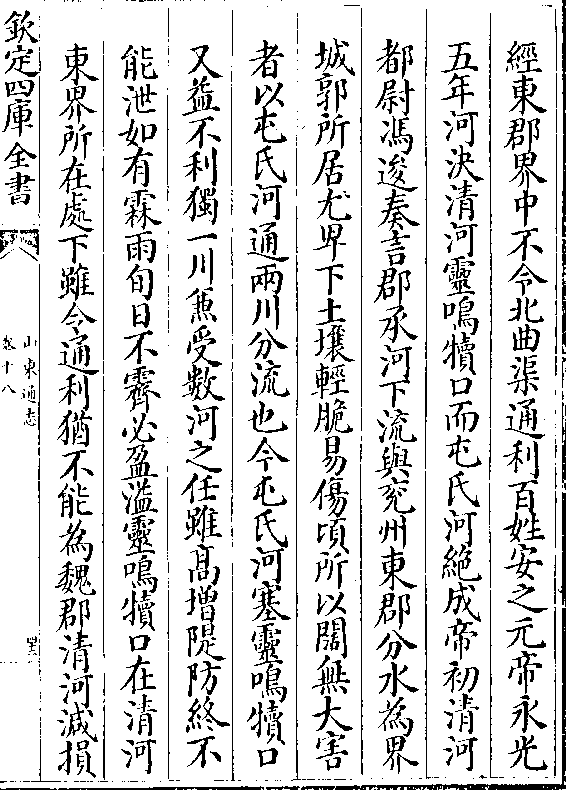 經東郡界中不令北曲渠通利百姓安之元帝永光
五年河決清河靈鳴犢口而屯氏河絶成帝初清河
都尉馮逡奏言郡承河下流與兖州東郡分水為界
城郭所居尤卑下土壤輕脆易傷頃所以闊無大害
者以屯氏河通兩川分流也今屯氏河塞靈鳴犢口
又益不利獨一川兼受數河之任雖髙增隄防終不
能泄如有霖雨旬日不霽必盈溢靈鳴犢口在清河
東界所在處下雖令通利猶不能為魏郡清河減損
欽定四庫全書
山東通志
卷十八